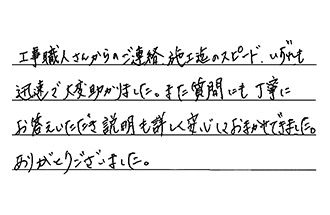 工事職人さんからのご連絡、施工迄のスピード、いずれも
迅速で大変助かりました。また質問にも丁寧に
お答えいただき説明も詳しく安心しておまかせできました。
ありがとうございました。